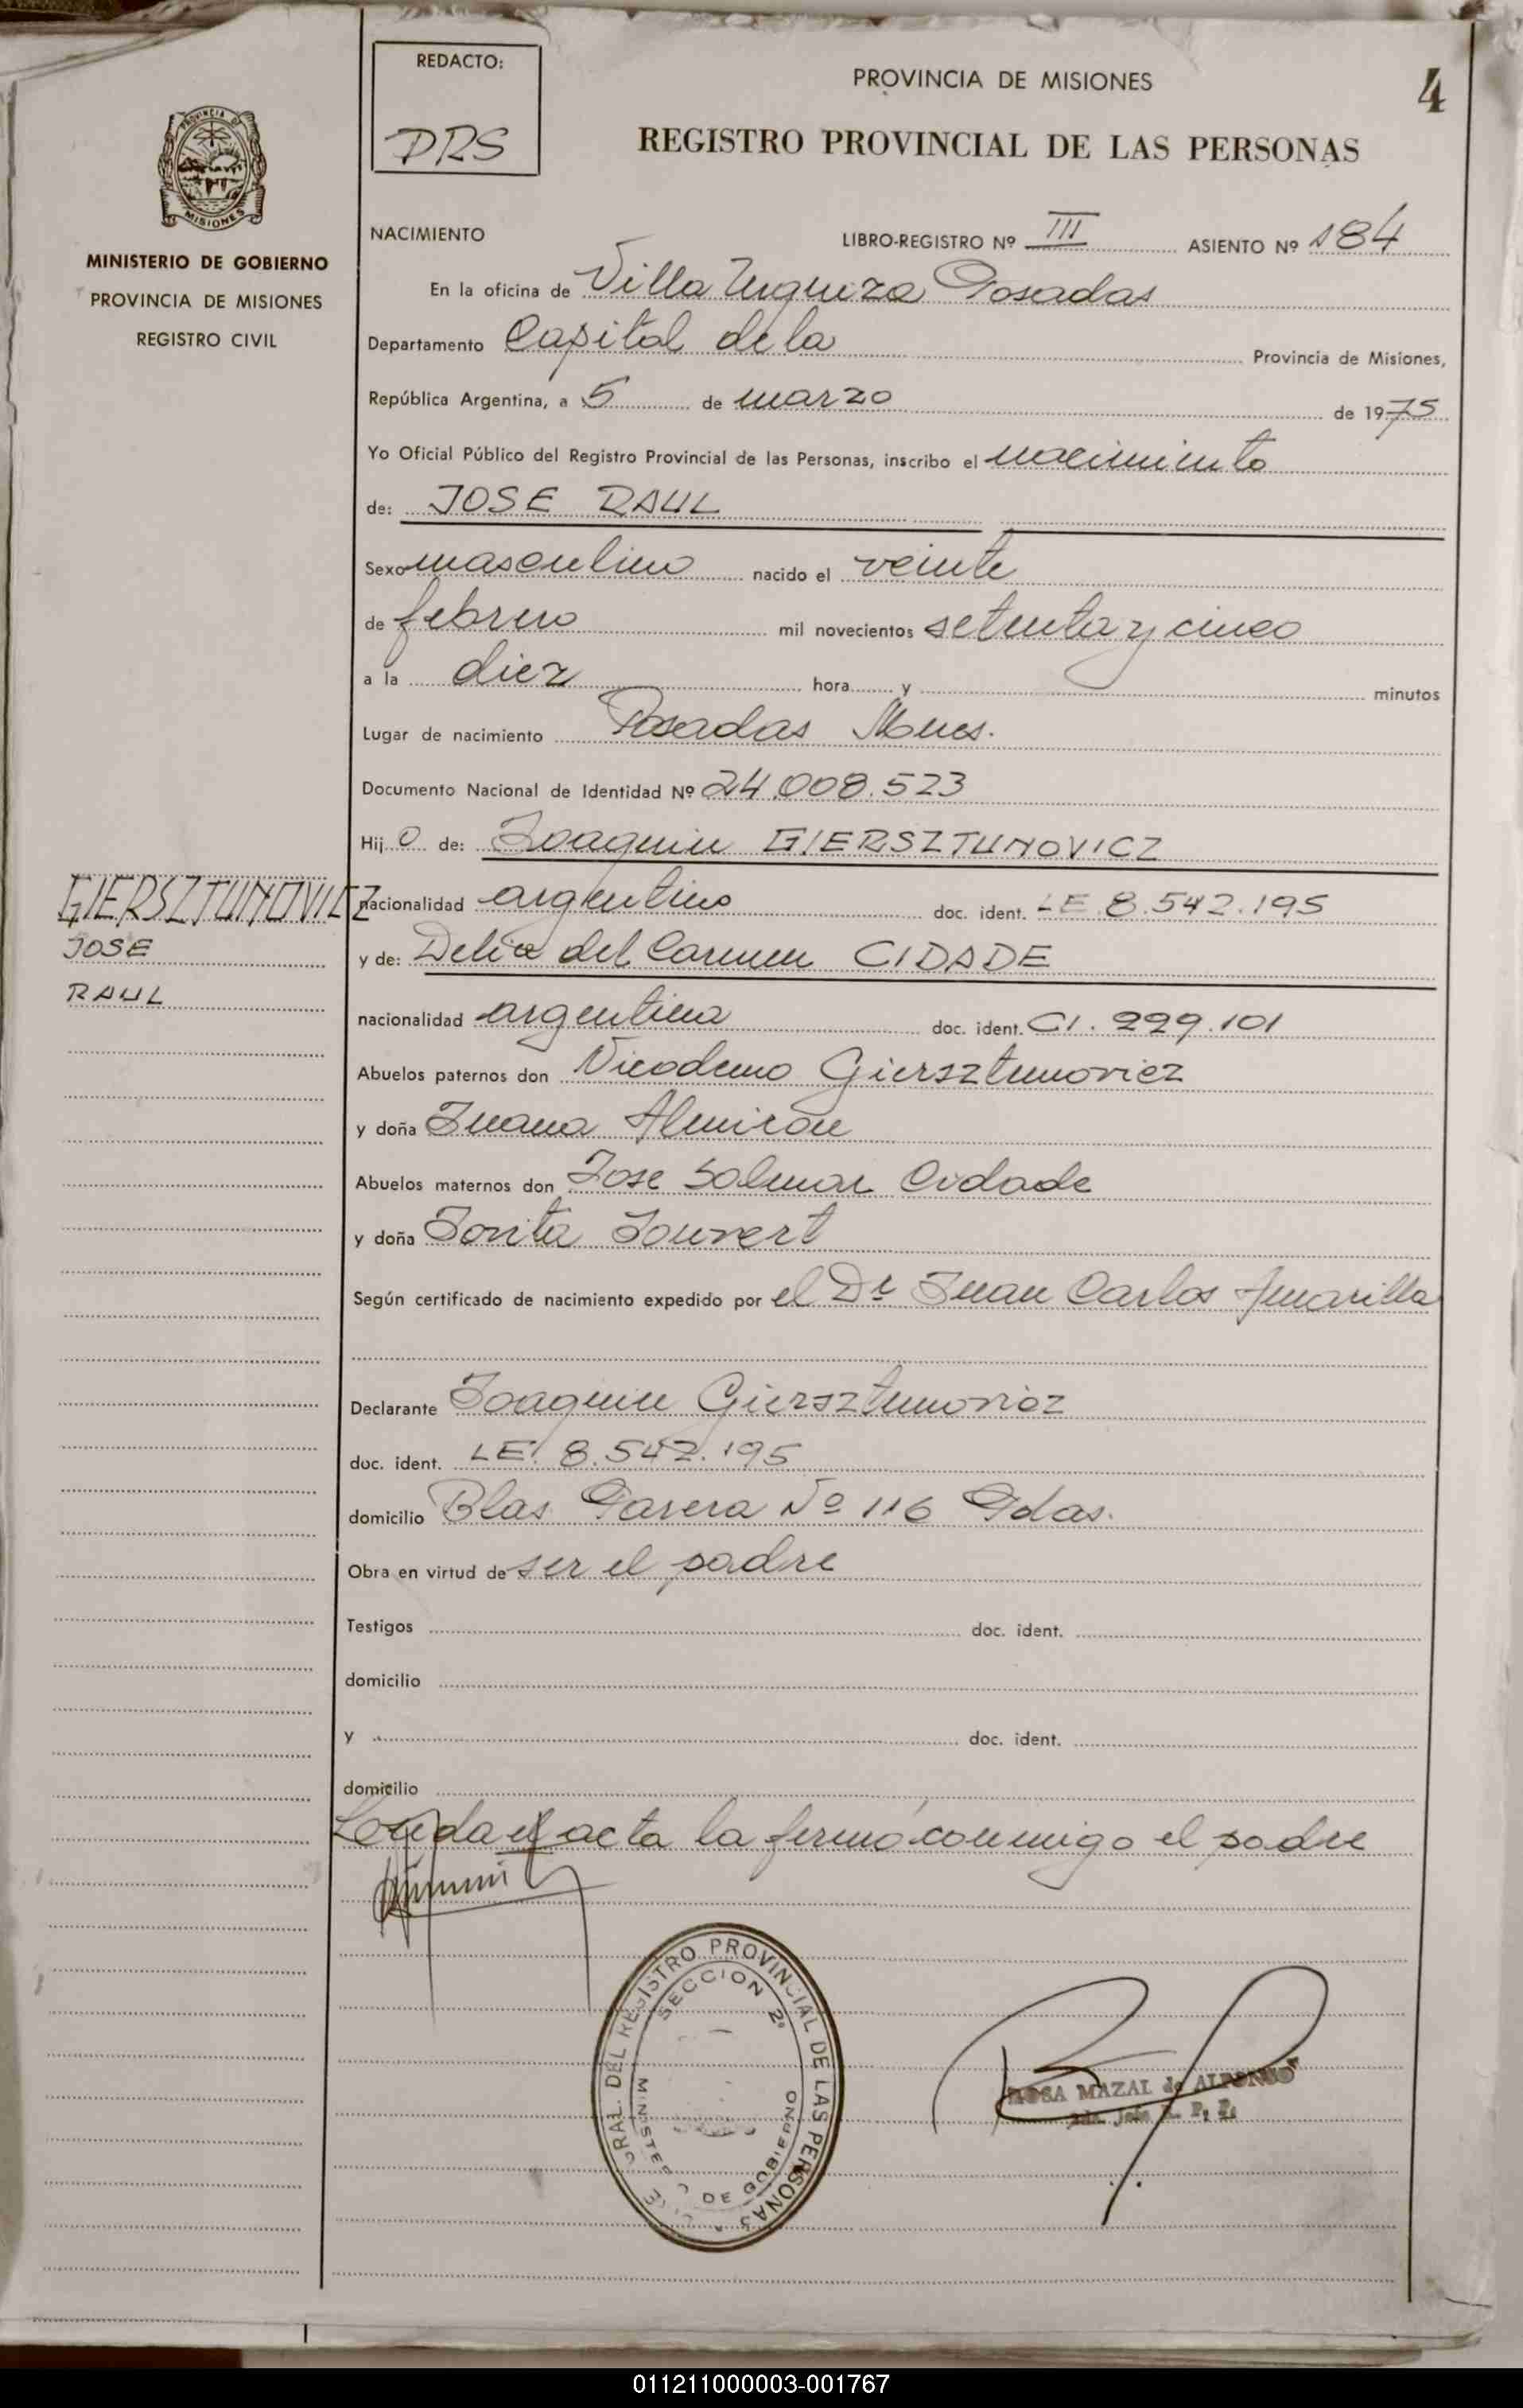 REDACTO:
DRS
PROVINCIA DE MISIONES
4
REGISTRO PROVINCIAL DE LAS PERSONAS
PROVINCIA D
MISIONES
MINISTERIO DE GOBIERNO
PROVINCIA DE MISIONES
REGISTRO CIVIL
NACIMIENTO
LIBRO-REGISTRO Nº III ASIENTO Nº 184
En la oficina de Villa Urquiza Posadas
Departamento Capital de la Provincia de Misiones,
República Argentina, a 5 de marzo de 1975
Yo Oficial Público del Registro Provincial de las Personas, inscribo el nacimiento
de: JOSE RAUL
Sexo masculino nacido el veinte
de febrero mil novecientos setenta y cinco
a la diez hora y minutos
Lugar de nacimiento Posadas Mnes.
Documento Nacional de Identidad Nº 24.008.523
Hij o de: Joaquin GIERSZTUNOVICZ
GIERSZTUNOVICZ
JOSE
RAUL
nacionalidad argentino doc. ident. LE 8.542.195
y de: Delia del Carmen CIDADE
nacionalidad argentina doc. ident. CI. 229.101
Abuelos paternos don Nicodemo Giersztunovicz
y doña Juana Almiron
Abuelos maternos don Jose Solmar Cidade
y doña Jorita
Según certificado de nacimiento expedido por el Dr Juan Carlos Amarilla
Declarante Joaquin Giersztunovicz
doc. ident. LE. 8.542.195
domicilio Blas Parera Nº 116 Pdas.
Obra en virtud de ser el padre
Testigos doc. ident.
domicilio
y doc. ident.
domicilio
Leida el acta la firmó conmigo el padre
GRAL. DEL REGISTRO PROVINCIAL DE LAS PERSONAS
SECCION 2ª
DE GOBIERNO
ROSA MAZAL de ALFONSO
011211000003-001767